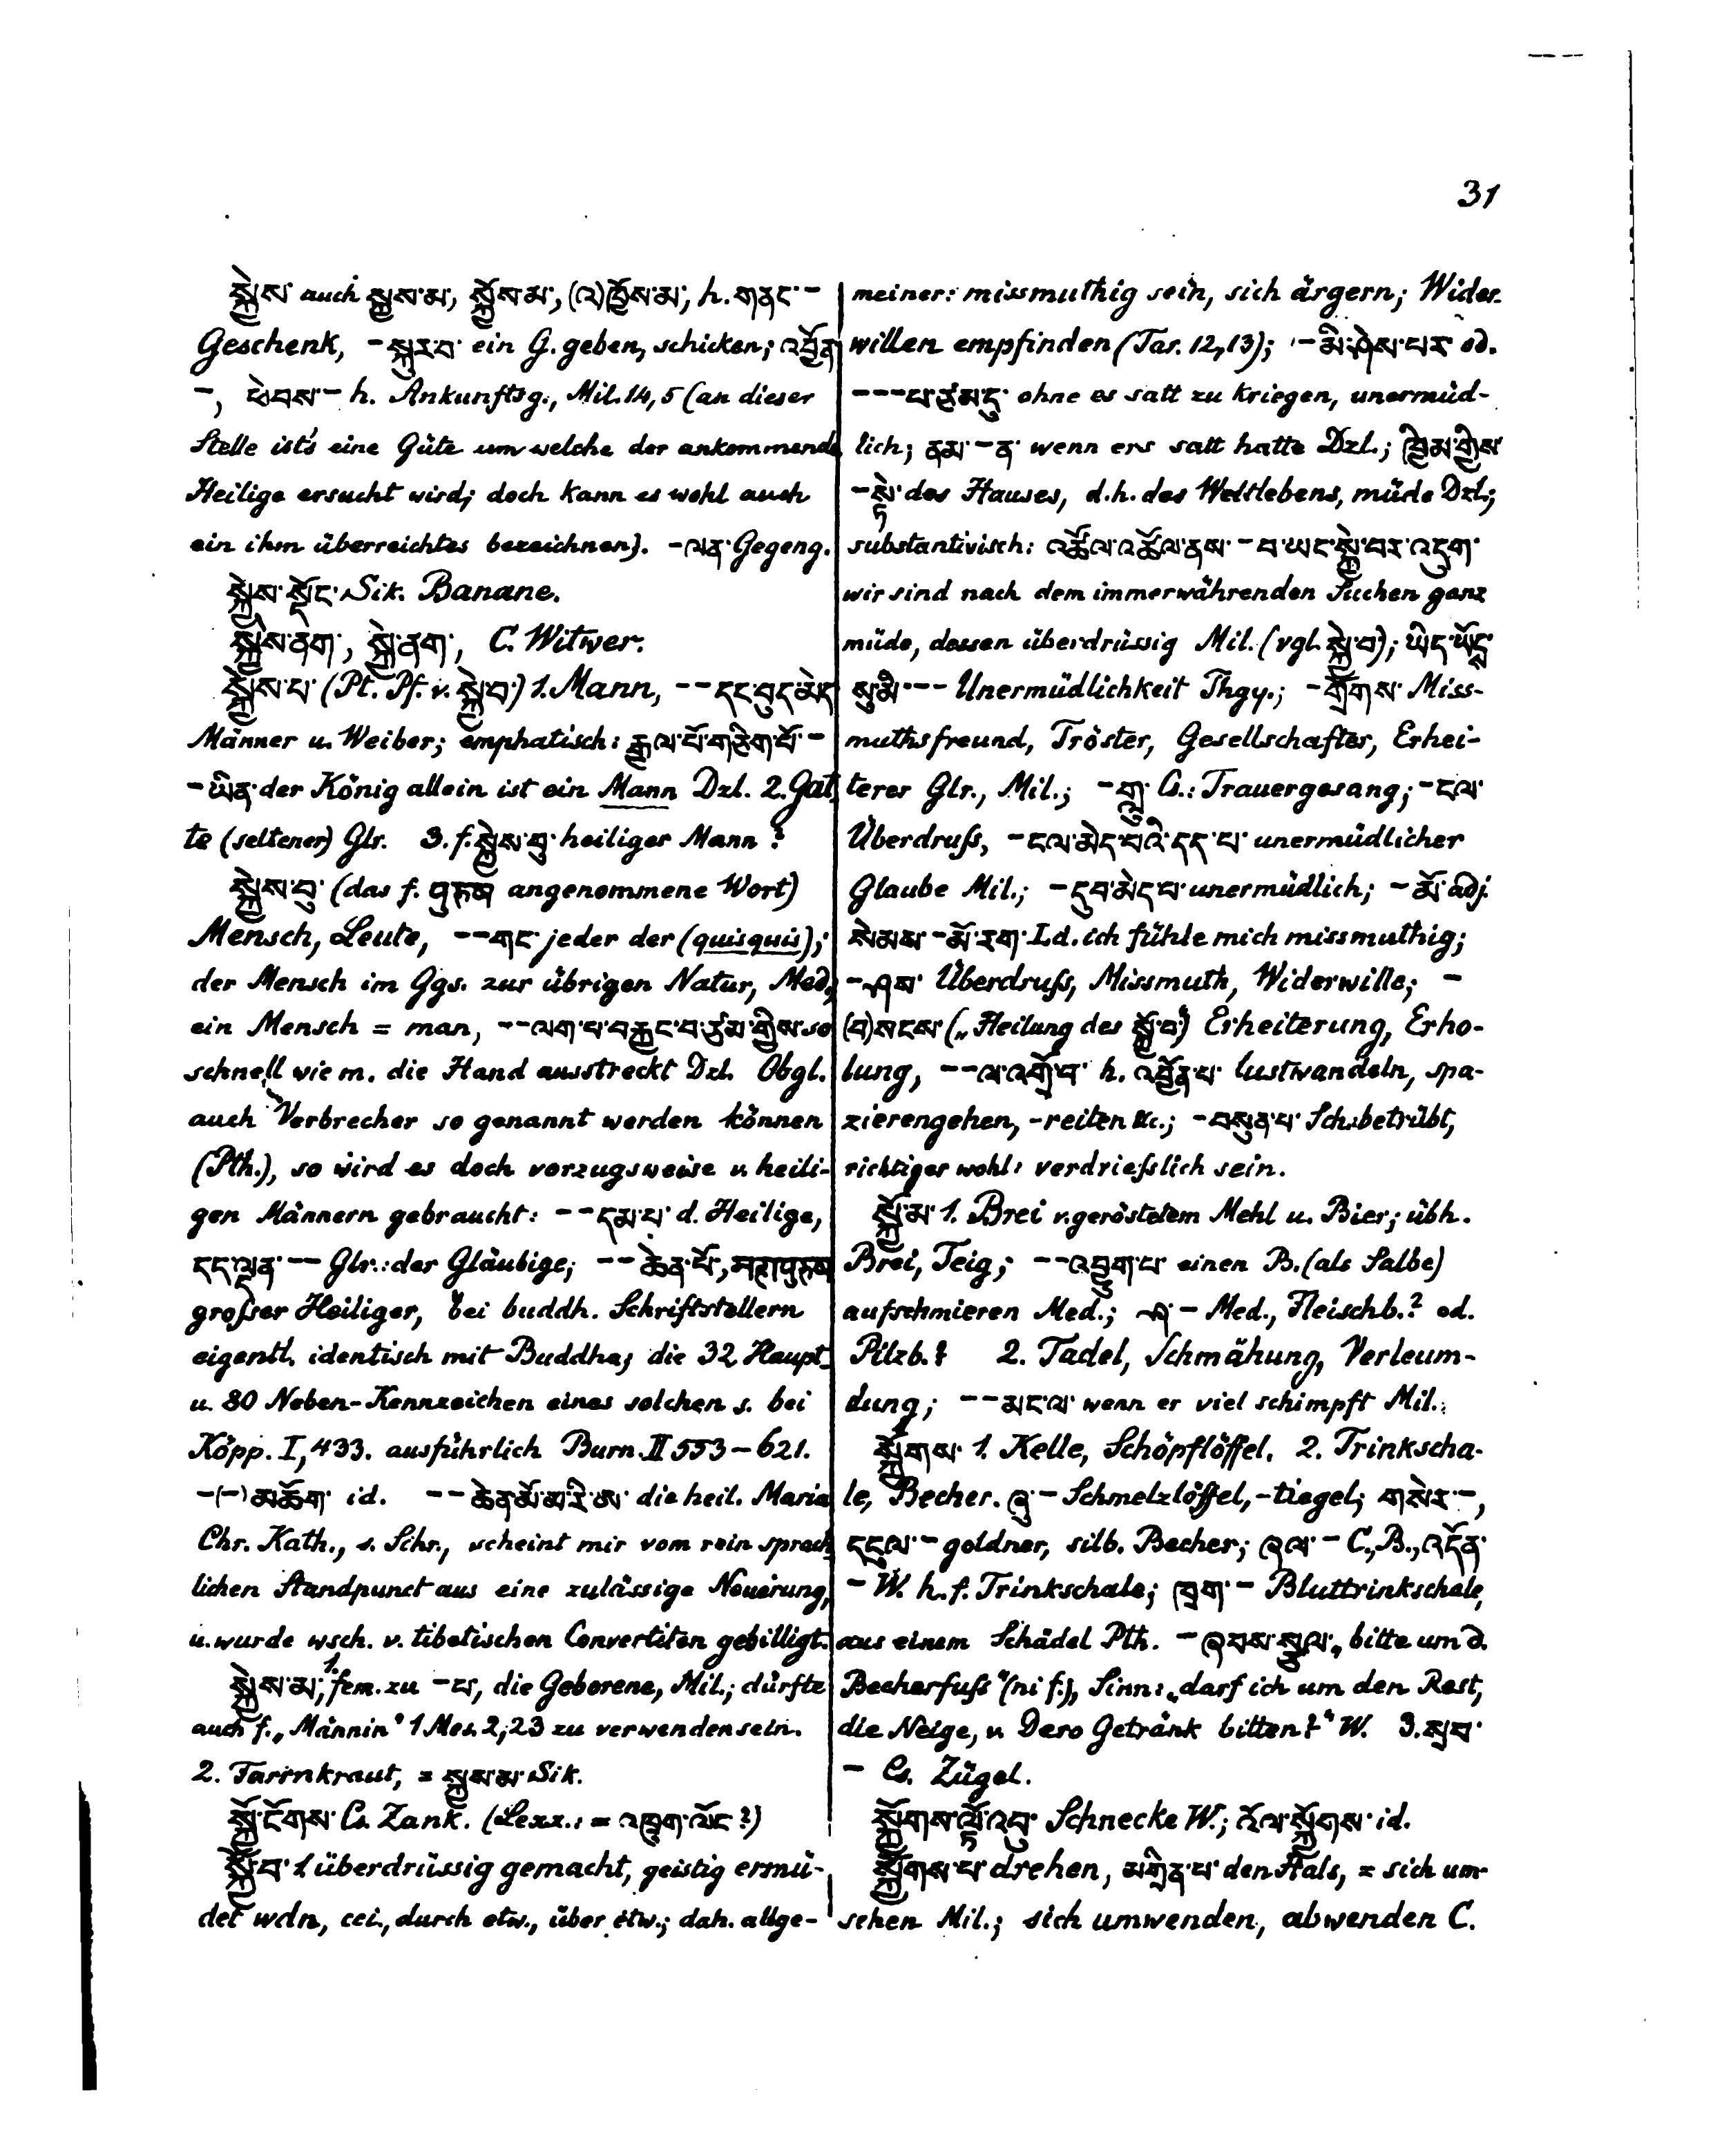 31
སྐྱེས་ auch སྐྱས་མ་, སྐྱོས་མ་, (འ)ཁྱོས་མ་, h. གནང་–
Geschenk, –སྐུར་བ་ ein G. geben, schicken; འབྱོན་
–, ཕེབས་– h. Ankunftsg., Mil. 14, 5 (an dieser
Stelle ist's eine Güte um welche der ankommende
Heilige ersucht wird; doch kann es wohl auch
ein ihm überreichtes bezeichnen). –ལན་ Gegeng.
སྐྱེས་སྡོང་ Sik. Banane.
སྐྱེས་ནག་, སྐྱེ་ནག་, C. Witwer.
སྐྱེས་པ་ (Pt. Pf. v. སྐྱེ་བ་) 1. Mann, ––དང་བུད་མེད་
Männer u. Weiber; emphatisch: རྒྱལ་པོ་གཅིག་པོ་–
–ཡིན་ der König allein ist ein Mann Dzl. 2. Gat-
te (seltener) Glr. 3. f. སྐྱེས་བུ་ heiliger Mann?
སྐྱེས་བུ་ (das f. पुरुष angenommene Wort)
Mensch, Leute, ––གང་ jeder der (quisquis);
der Mensch im Ggs. zur übrigen Natur, Med.;
ein Mensch = man, ––ལག་པ་བརྐྱང་བ་ཙམ་གྱིས་ so
schnell wie m. die Hand ausstreckt Dzl. Obgl.
auch Verbrecher so genannt werden können
(Pth.), so wird es doch vorzugsweise v. heili-
gen Männern gebraucht: ––དམ་པ་ d. Heilige,
དད་ལྡན་–– Glr.: der Gläubige; ––ཆེན་པོ་, महापुरुष
großer Heiliger, bei buddh. Schriftstellern
eigentl. identisch mit Buddha; die 32 Haupt-
u. 80 Neben-Kennzeichen eines solchen s. bei
Köpp. I, 433. ausführlich Burn. II 553–621.
–(–)མཆོག་ id. ––ཆེན་མོ་མ་རི་ཨ་ die heil. Maria
Chr. Kath., s. Schr., scheint mir vom rein sprach-
lichen Standpunct aus eine zulässige Neuerung,
u. wurde wsch. v. tibetischen Convertiten gebilligt.
སྐྱེས་མ་, 1. fem. zu –པ་, die Geborene, Mil.; dürfte
auch f. „Männin" 1 Mos. 2, 23 zu verwenden sein.
2. Farrnkraut, = སྐྱས་མ་ Sik.
སྐྱོ་ངོགས་ Cs. Zank. (Lexx.: = འཁྲུག་ལོང་?)
སྐྱོ་བ་ 1 überdrüssig gemacht, geistig ermü-
det wdn, cci., durch etw., über etw.; dah. allge-
meiner: missmuthig sein, sich ärgern; Wider-
willen empfinden (Tar. 12, 13); –མི་ཤེས་པར་ od.
–––པ་ཙམ་དུ་ ohne es satt zu kriegen, unermüd-
lich; ནམ་–ན་ wenn ers satt hatte Dzl.; ཁྱིམ་གྱིས་
–སྟེ་ des Hauses, d. h. des Weltlebens, müde Dzl.;
substantivisch: འཚོལ་འཚོལ་ནས་–བ་ཡང་སྐྱེ་བར་འདུག་
wir sind nach dem immerwährenden Suchen ganz
müde, dessen überdrüssig Mil. (vgl. སྐྱེ་བ་); ཡིད་ཡོངས་
སུ་མི་–– Unermüdlichkeit Thgy.; –གྲོགས་ Miss-
muthsfreund, Tröster, Gesellschafter, Erhei-
terer Glr., Mil.; –གླུ་ Cs.: Trauergesang; –ངལ་
Überdruß, –ངལ་མེད་པའི་དད་པ་ unermüdlicher
Glaube Mil.; –དུབ་མེད་པ་ unermüdlich; –མོ་ adj.
སེམས་–མོ་རག་ Ld. ich fühle mich missmuthig;
–ཤས་ Überdruß, Missmuth, Widerwille; –
(བ)སངས་ („Heilung des སྐྱོ་བ་") Erheiterung, Erho-
lung, ––ལ་འགྲོ་བ་ h. འབྱོན་པ་ lustwandeln, spa-
zierengehen, -reiten &c.; –བསུན་པ་ Sch.: betrübt,
richtiger wohl: verdrießlich sein.
སྐྱོ་མ་ 1. Brei v. geröstetem Mehl u. Bier; übh.
Brei, Teig; ––འབྱུག་པ་ einen B. (als Salbe)
aufschmieren Med.; ཤ་– Med., Fleischb.? od.
Pilzb.? 2. Tadel, Schmähung, Verleum-
dung; ––མང་ལ་ wenn er viel schimpft Mil.
སྐྱོགས་ 1. Kelle, Schöpflöffel. 2. Trinkscha-
le, Becher. ཞུ་– Schmelzlöffel, -tiegel; གསེར་–,
དངུལ་– goldner, silb. Becher; ཞལ་– C., B., འདོན་
– W. h. f. Trinkschale; ཁྲག་– Bluttrinkschale,
aus einem Schädel Pth. –ཞབས་སྩལ་ „bitte um d.
Becherfuß" (ni f.), Sinn: „darf ich um den Rest,
die Neige, v. Dero Getränk bitten?" W. 3. སྲབ་
– Cs. Zügel.
སྐྱོགས་ལྟོ་འབུ་ Schnecke W.; འོལ་སྐྱོགས་ id.
སྐྱོགས་པ་ drehen, མགྲིན་པ་ den Hals, = sich um-
sehen Mil.; sich umwenden, abwenden C.